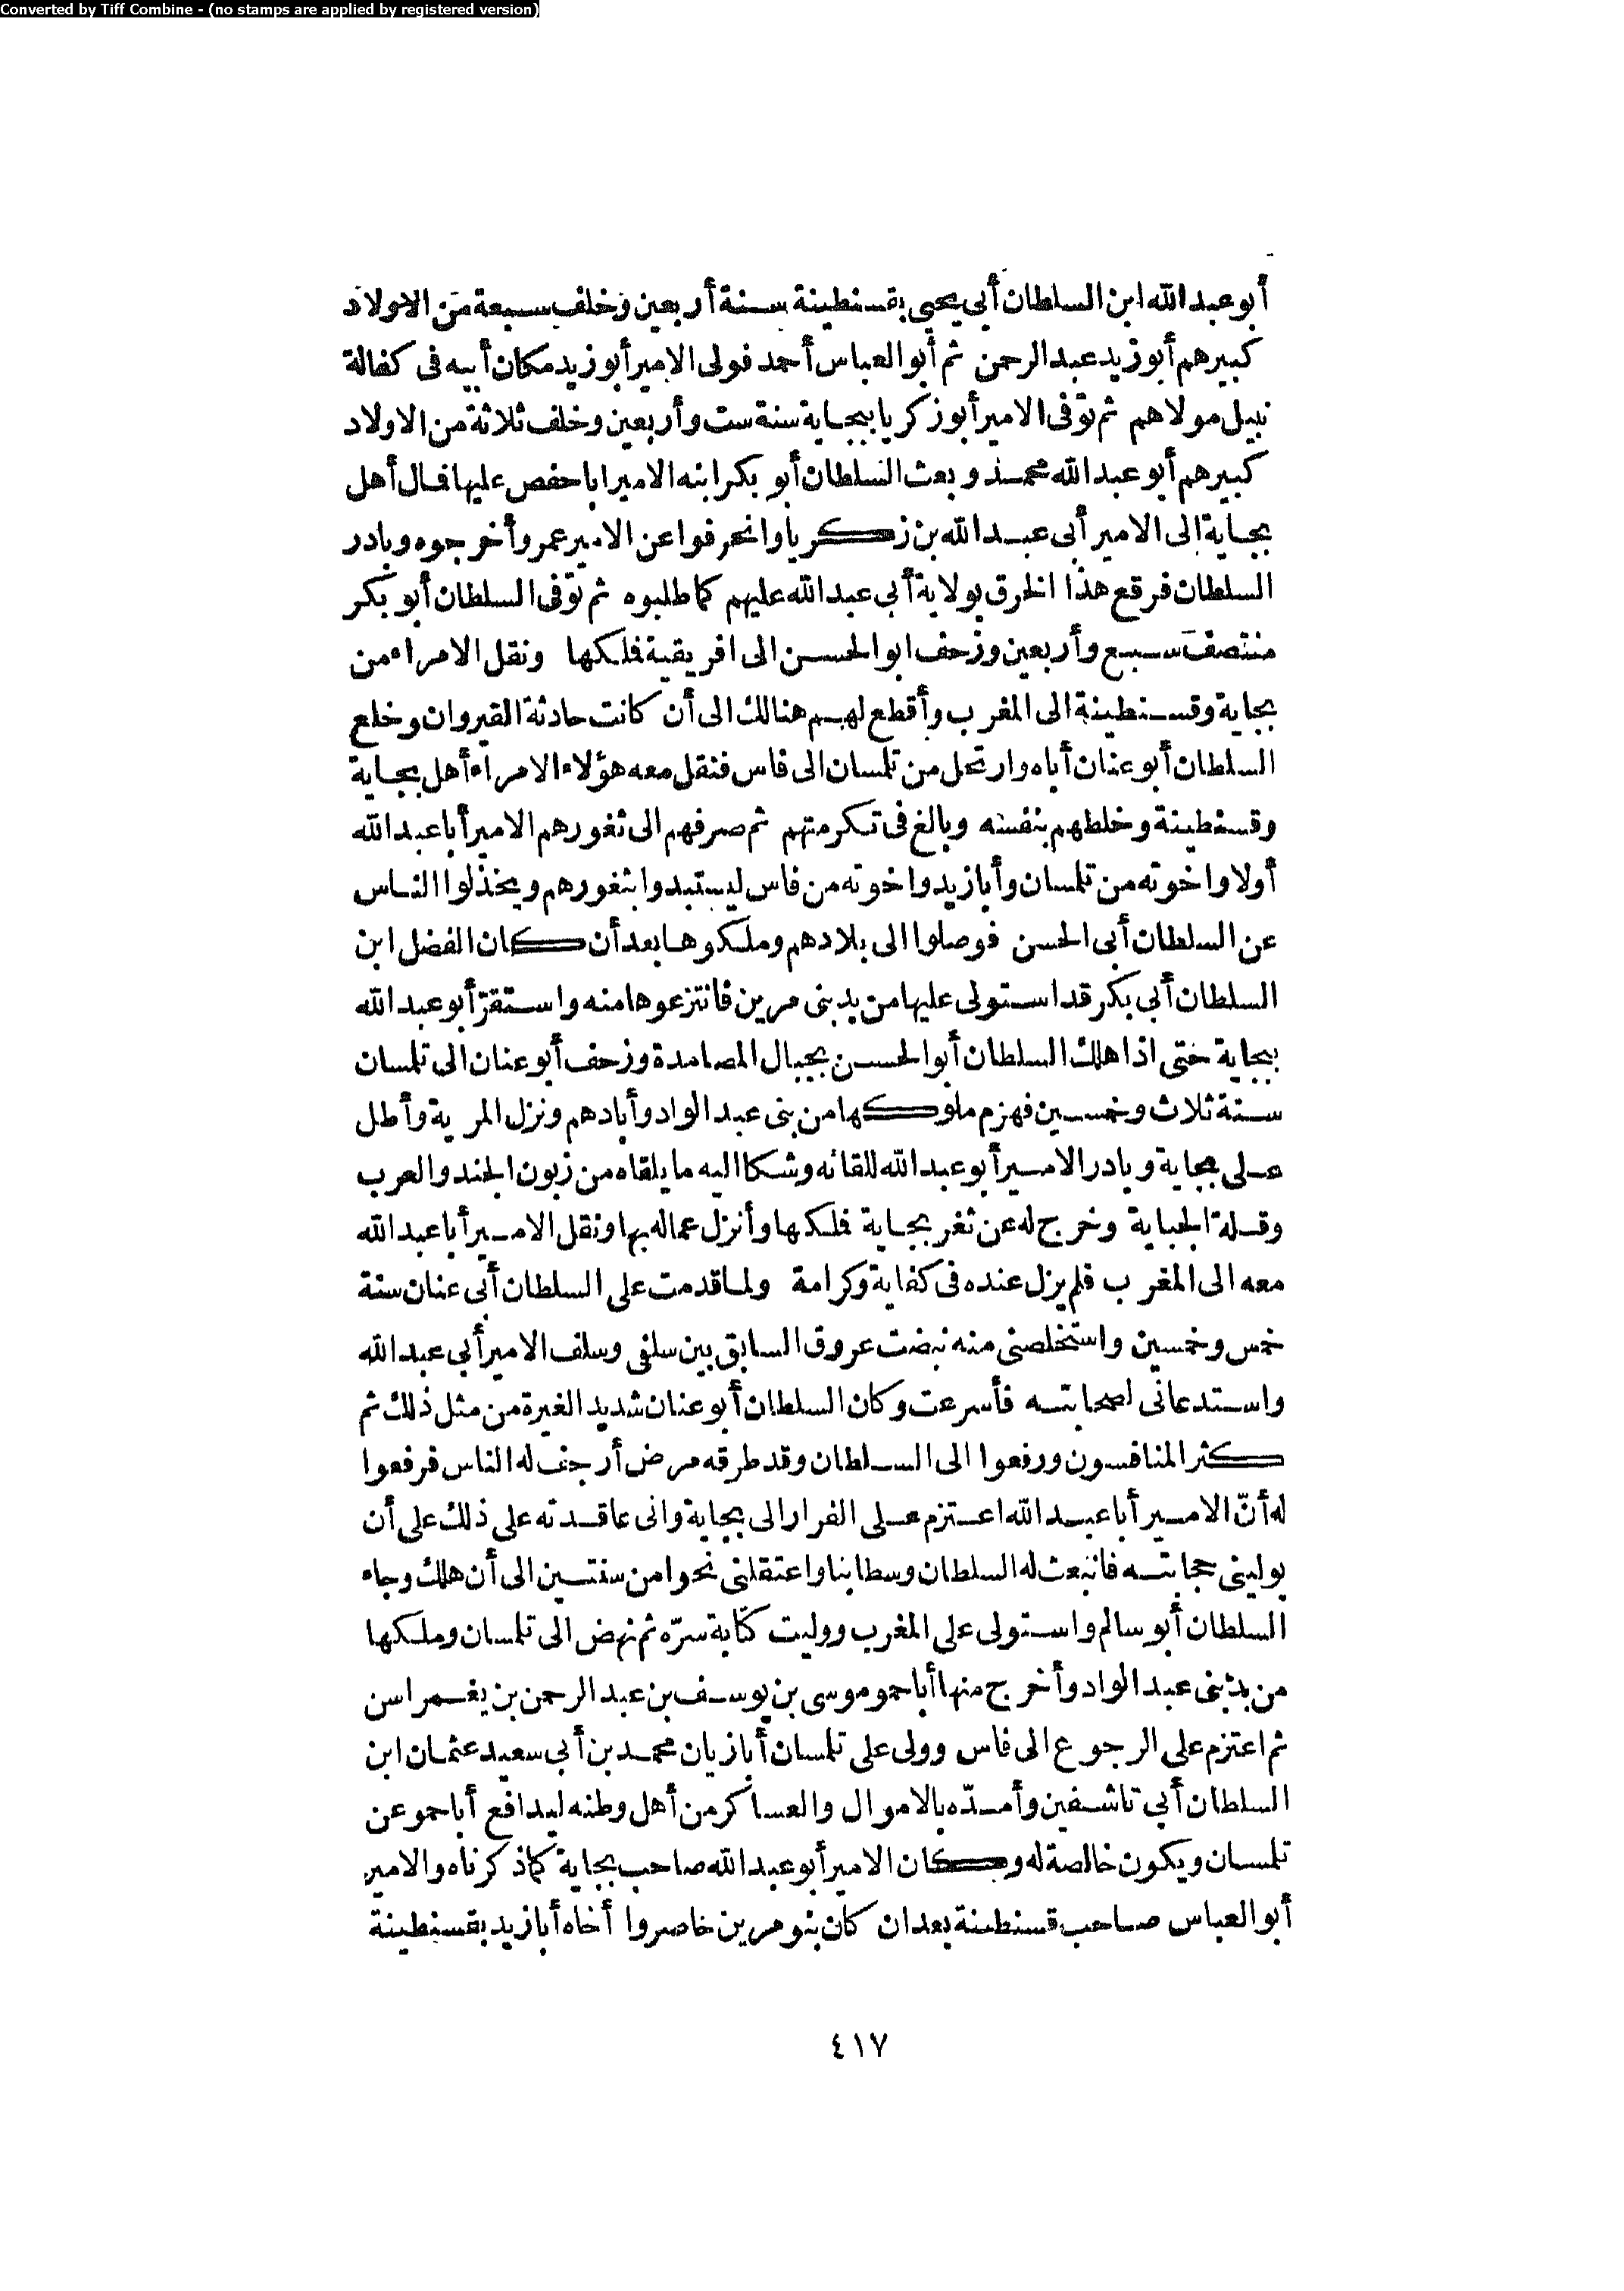 Converted by Tiff Combine - (no stamps are applied by registered version)
أبو عبد الله ابن السلطان أبي يحيى بقسنطينة سنة أربعين وخلف سبعة من الاولاد
كبيرهم أبو زيد عبد الرحمن ثم أبو العباس أحمد فولى الامير أبو زيد مكان أبيه فى كفالة
نبيل مولاهم ثم توّفى الامير أبو زكريا ببجاية سنة ست وأربعين وخلف ثلاثة من الاولاد
كبيرهم أبو عبد الله محمد وبعث السلطان أبو بكر ابنه الامير ابا حفص عليها فمال أهل
بجاية الى الامير أبى عبد الله بن زكريا وانحرفوا عن الامير عمر وأخرجوه وبادر
السلطان فرقع هذا الخرق بولاية أبى عبد الله عليهم كما طلبوه ثم توّفى السلطان أبو بكر
منتصف سبع وأربعين وزحف ابو الحسن الى افريقية فملكها ونقل الامراء من
بجاية وقسنطينة الى المغرب وأقطع لهم هنالك الى أن كانت حادثة القيروان وخلع
السلطان أبو عنان أباه وارتحل من تلمسان الى فاس فنقل معه هؤلاء الامراء أهل بجاية
وقسنطينة وخلطهم بنفسه وبالغ فى تكرمتهم ثم صرفهم الى ثغورهم الامير أبا عبد الله
أولا واخوته من تلمسان وأبا زيد واخوته من فاس ليستبدوا بثغورهم ويخذلوا الناس
عن السلطان أبى الحسن فوصلوا الى بلادهم وملكوها بعد أن كان الفضل ابن
السلطان أبى بكر قد استولى عليها من يد بنى مرين فانتزعوها منه واستقرّ أبو عبد الله
ببجاية حتى اذا هلك السلطان أبو الحسن بجبال المصامدة وزحف أبو عنان الى تلمسان
سنة ثلاث وخمسين فهزم ملوكها من بنى عبد الواد وأبادهم ونزل المرية وأطل
على بجاية وبادر الامير أبو عبد الله للقائه وشكا اليه ما يلقاه من زبون الجند والعرب
وقلة الجباية وخرج له عن ثغر بجاية فملكها وأنزل عماله بها ونقل الامير أبا عبد الله
معه الى المغرب فلم يزل عنده فى كفاية وكرامة ولما قدمت على السلطان أبى عنان سنة
خمس وخمسين واستخلصنى منه نبضت عروق السابق بين سلفى وسلف الامير أبى عبد الله
واستدعانى لصحابته فأسرعت وكان السلطان أبو عنان شديد الغيرة من مثل ذلك ثم
كثر المنافسون ورفعوا الى السلطان وقد طرقه مرض أرجف له الناس فرفعوا
له أنّ الامير أبا عبد الله اعتزم على الفرار الى بجاية وانى عاقدته على ذلك على أن
يولينى حجابته فانبعث له السلطان وسطا بنا واعتقلنى نحوا من سنتين الى أن هلك وجاء
السلطان أبو سالم واستولى على المغرب ووليت كتابة سرّه ثم نهض الى تلمسان وملكها
من يد بنى عبد الواد وأخرج منها أبا حمو موسى بن يوسف بن عبد الرحمن بن يغمراسن
ثم اعتزم على الرجوع الى فاس وولى على تلمسان أبا زيان محمد بن أبى سعيد عثمان ابن
السلطان أبى تاشفين وأمدّه بالاموال والعساكر من أهل وطنه ليدافع أبا حمو عن
تلمسان ويكون خالصة له وكان الامير أبو عبد الله صاحب بجاية كما ذكرناه والامير
أبو العباس صاحب قسنطينة بعد ان كان بنو مرين حاصروا أخاه أبا زيد بقسنطينة
٤١٧